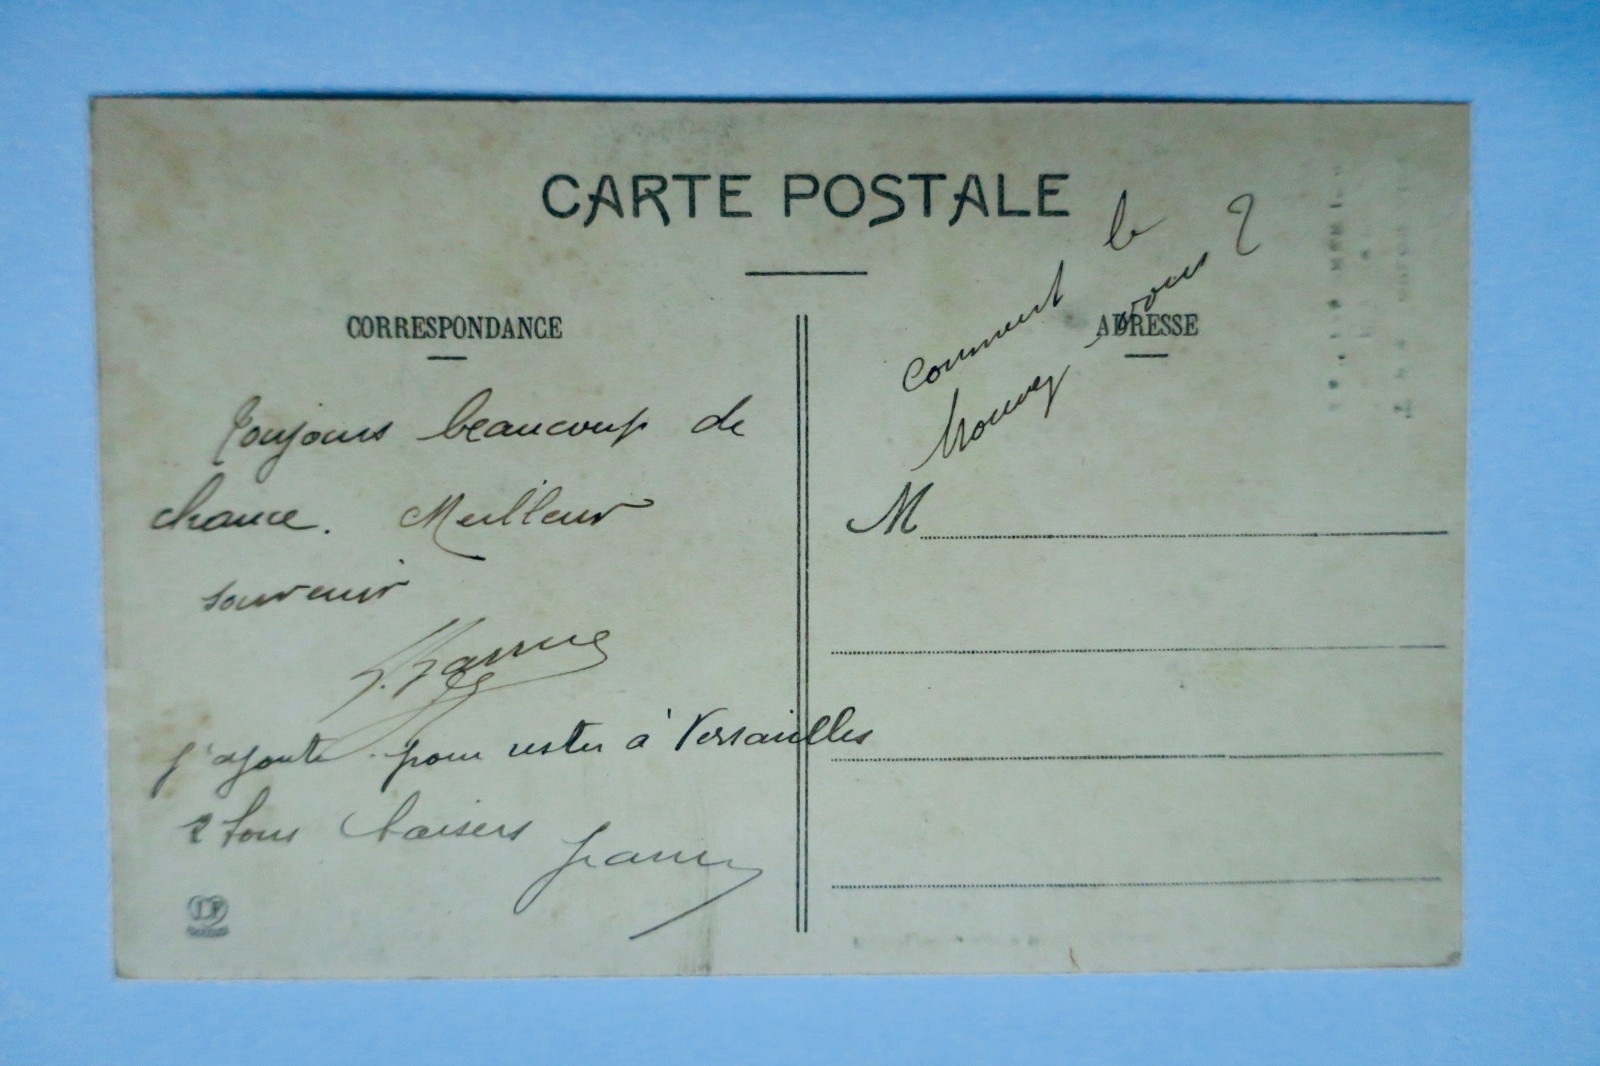 CARTE POSTALE
CORRESPONDANCE
Toujours beaucoup de
chance. Meilleur
souvenir
j'ajoute pour rester à Versailles
2 bons baisers
ADRESSE
comment le
trouvez vous ?
M